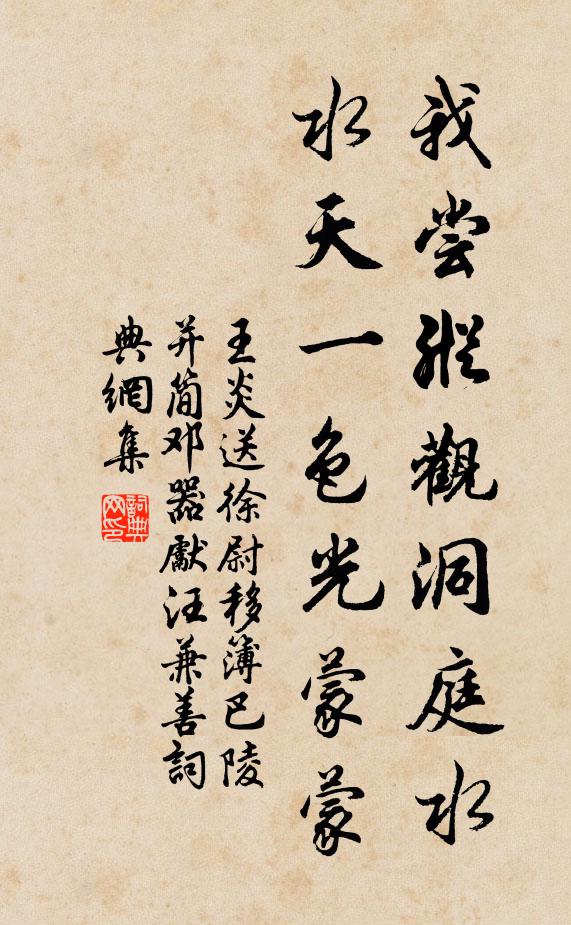 我尝縱觀洞庭水
水天一色光蒙蒙
王炎送徐尉移簿巴陵
并简邓器獻汪兼善詞
典網集
詞典
网印